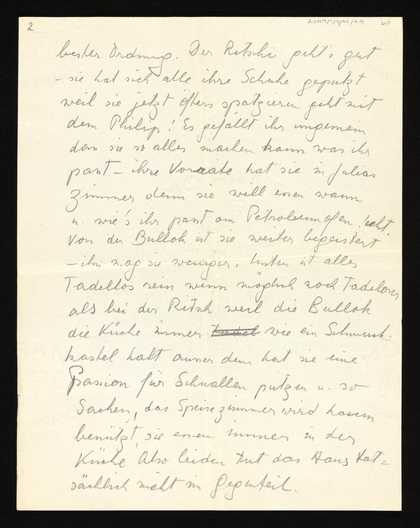 2
bester Ordnung. Der Ritschi geht's gut
– sie hat sich alle ihre Schuhe geputzt
weil sie jetzt öfters spatzieren geht mit
dem Philip! Es gefällt ihr ungemein
dass sie so alles machen kann was ihr
passt – ihre Vorräte hat sie in Julias
Zimmer denn sie will essen wann
u. wie's ihr passt am Petroleumofen
Von der Bullok ist sie weiter begeistert
– ihn mag sie weniger. Unten ist alles
Tadellos rein wenn möglich noch Tadeloser
als bei der Ritsch weil die Bullok
die Küche immer wie ein Schmuck-
kastel halt ausser dem hat sie eine
Passion für Schnallen putzen u. so
Sachen, das Speisezimmer wird kaum
benützt, sie essen immer in der
Küche Also leiden tut das Haus tat-
sächlich nicht im Gegenteil.